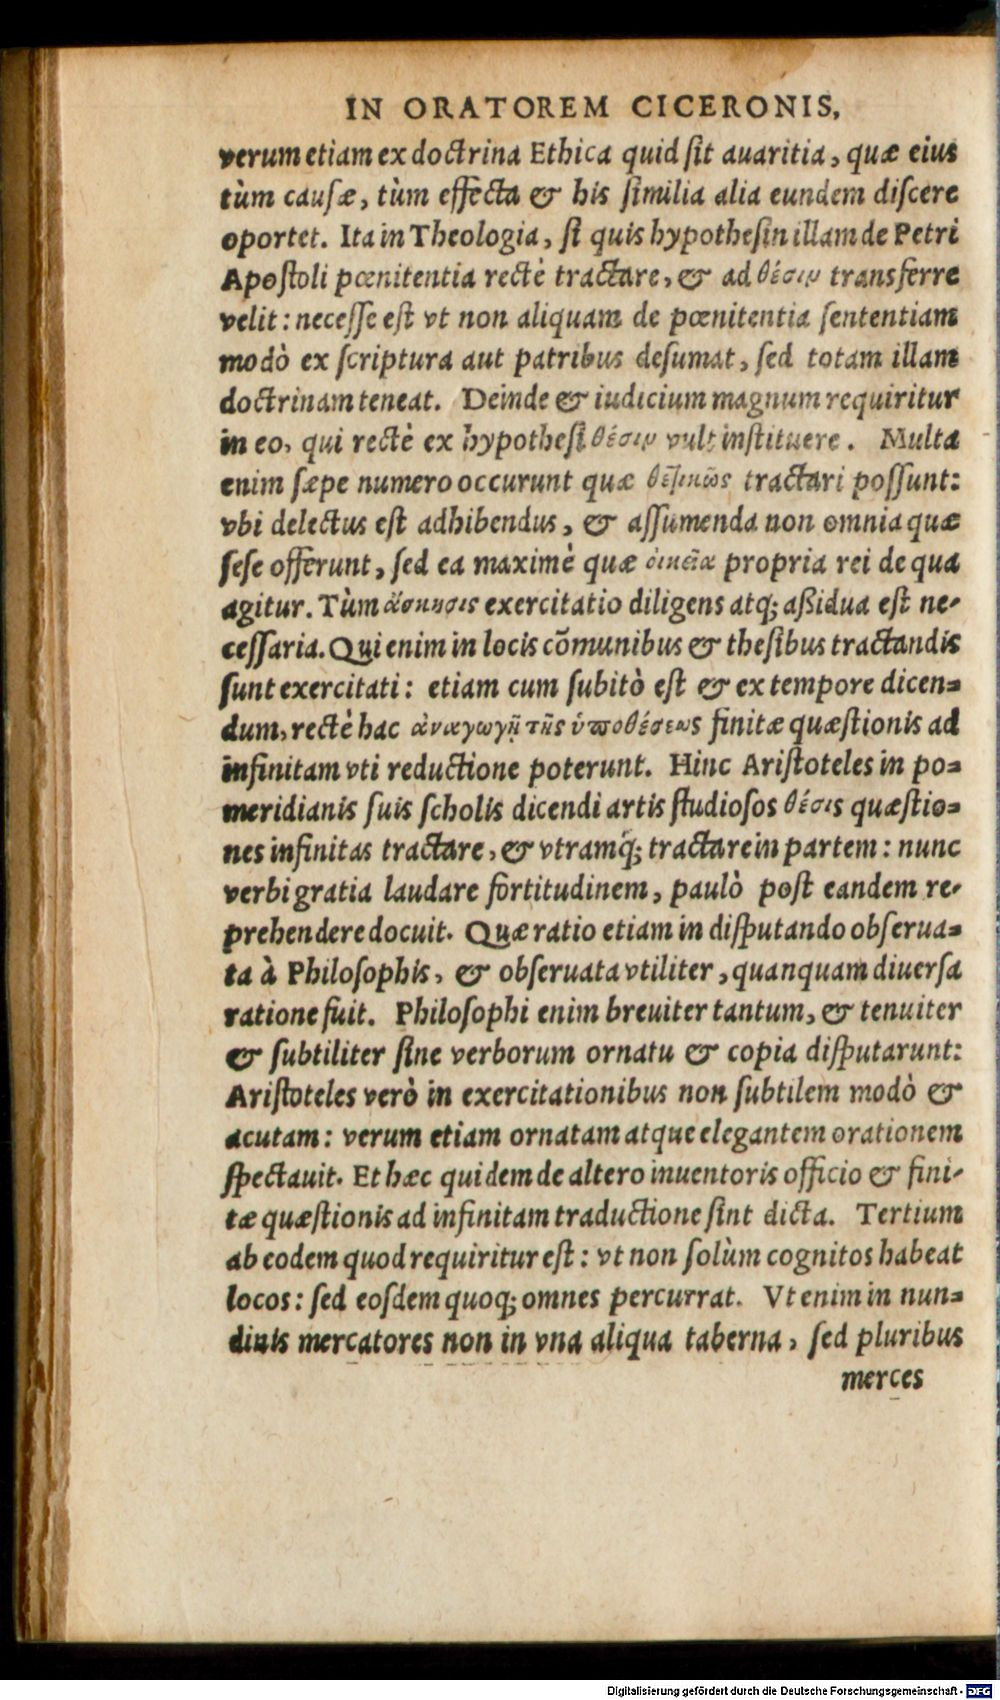 IN ORATOREM CICERONIS,
verum etiam ex doctrina Ethica quid ſit auaritia, quæ eius
tùm cauſæ, tùm effecta & his ſimilia alia eundem diſcere
oportet. Ita in Theologia, ſi quis hypotheſin illam de Petri
Apoſtoli pœnitentia rectè tractare, & ad θέσιν transferre
velit: neceſſe eſt vt non aliquam de pœnitentia ſententiam
modò ex ſcriptura aut patribus deſumat, ſed totam illam
doctrinam teneat. Deinde & iudicium magnum requiritur
in eo, qui rectè ex hypotheſi θέσιν vult inſtituere. Multa
enim ſæpe numero occurunt quæ θετικῶς tractari poſſunt:
vbi delectus eſt adhibendus, & aſſumenda non omnia quæ
ſeſe offerunt, ſed ea maximè quæ ὀικεῖα propria rei de qua
agitur. Tùm ἄσκησις exercitatio diligens atq; aßidua eſt ne-
ceſſaria. Qui enim in locis cõmunibus & theſibus tractandis
ſunt exercitati: etiam cum ſubitò eſt & ex tempore dicen-
dum, rectè hac ἀναγωγῇ τῆς ὑποθέσεως finitæ quæſtionis ad
infinitam vti reductione poterunt. Hinc Ariſtoteles in po-
meridianis ſuis ſcholis dicendi artis ſtudioſos θέσις quæſtio-
nes infinitas tractare, & vtramq́; tractare in partem: nunc
verbi gratia laudare fortitudinem, paulò poſt eandem re-
prehendere docuit. Quæ ratio etiam in diſputando obſerua-
ta à Philoſophis, & obſeruata vtiliter, quanquam diuerſa
ratione fuit. Philoſophi enim breuiter tantum, & tenuiter
& ſubtiliter ſine verborum ornatu & copia diſputarunt:
Ariſtoteles verò in exercitationibus non ſubtilem modò &
acutam: verum etiam ornatam atque elegantem orationem
ſpectauit. Et hæc quidem de altero inuentoris officio & fini-
tæ quæſtionis ad infinitam traductione ſint dicta. Tertium
ab eodem quod requiritur eſt: vt non ſolùm cognitos habeat
locos: ſed eoſdem quoq; omnes percurrat. Vt enim in nun-
dinis mercatores non in vna aliqua taberna, ſed pluribus
merces
Digitalisierung gefördert durch die Deutsche Forschungsgemeinschaft - DFG